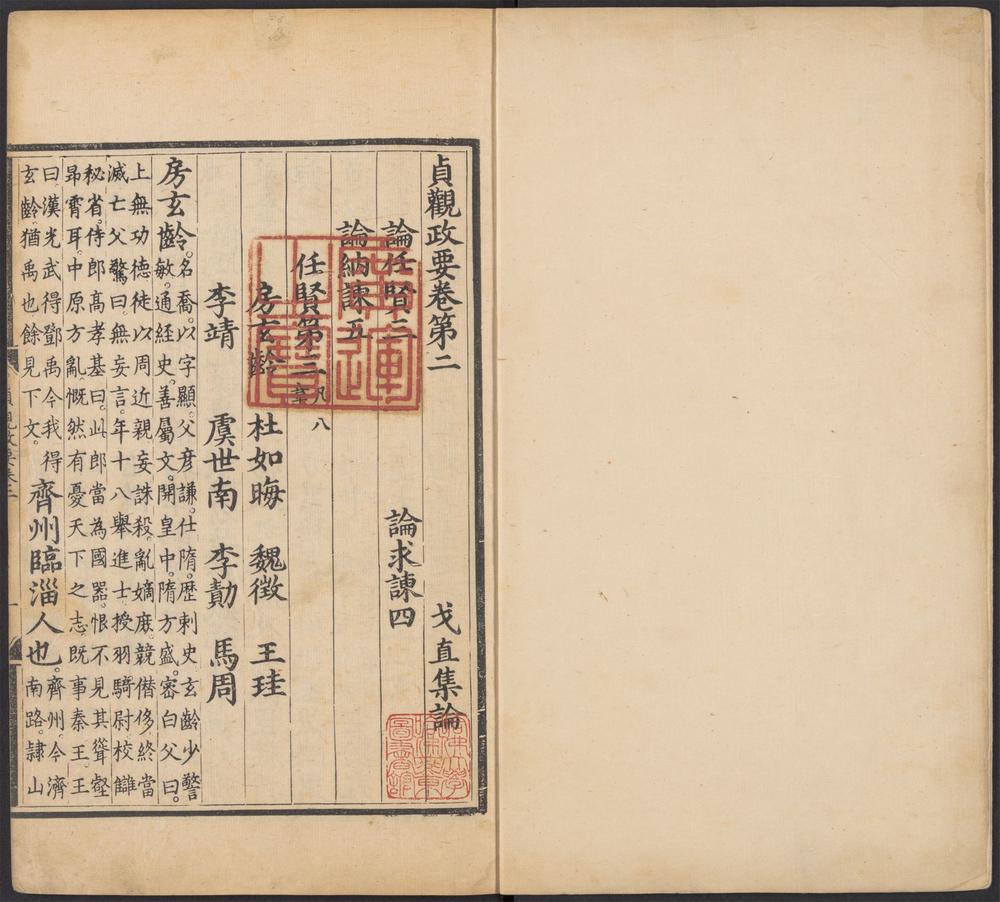 貞觀政要卷第二 戈直集論
論任賢三 論求諫四
論納諫五
任賢第三 凡八
章
房玄齡 杜如晦 魏徵 王珪
李靖 虞世南 李勣 馬周
房玄齡。名喬。以字顯。父彥謙。仕隋。歷刺史玄齡少警
敏。通經史。善屬文。開皇中。隋方盛。密白父曰。
上無功德徒以周近親妄誅殺。亂嫡庶競僭侈終當
滅亡父驚曰。無妄言。年十八舉進士授羽騎尉校讎
秘省。侍郎高孝基曰。此郎當為國器。恨不見其聳壑
昻霄耳。中原方亂。慨然有憂天下之志。既事秦王。王
曰。漢光武得鄧禹今我得
玄齡。猶禹也餘見下文。
齊州臨淄人也。齊州今濟
南路。隷山